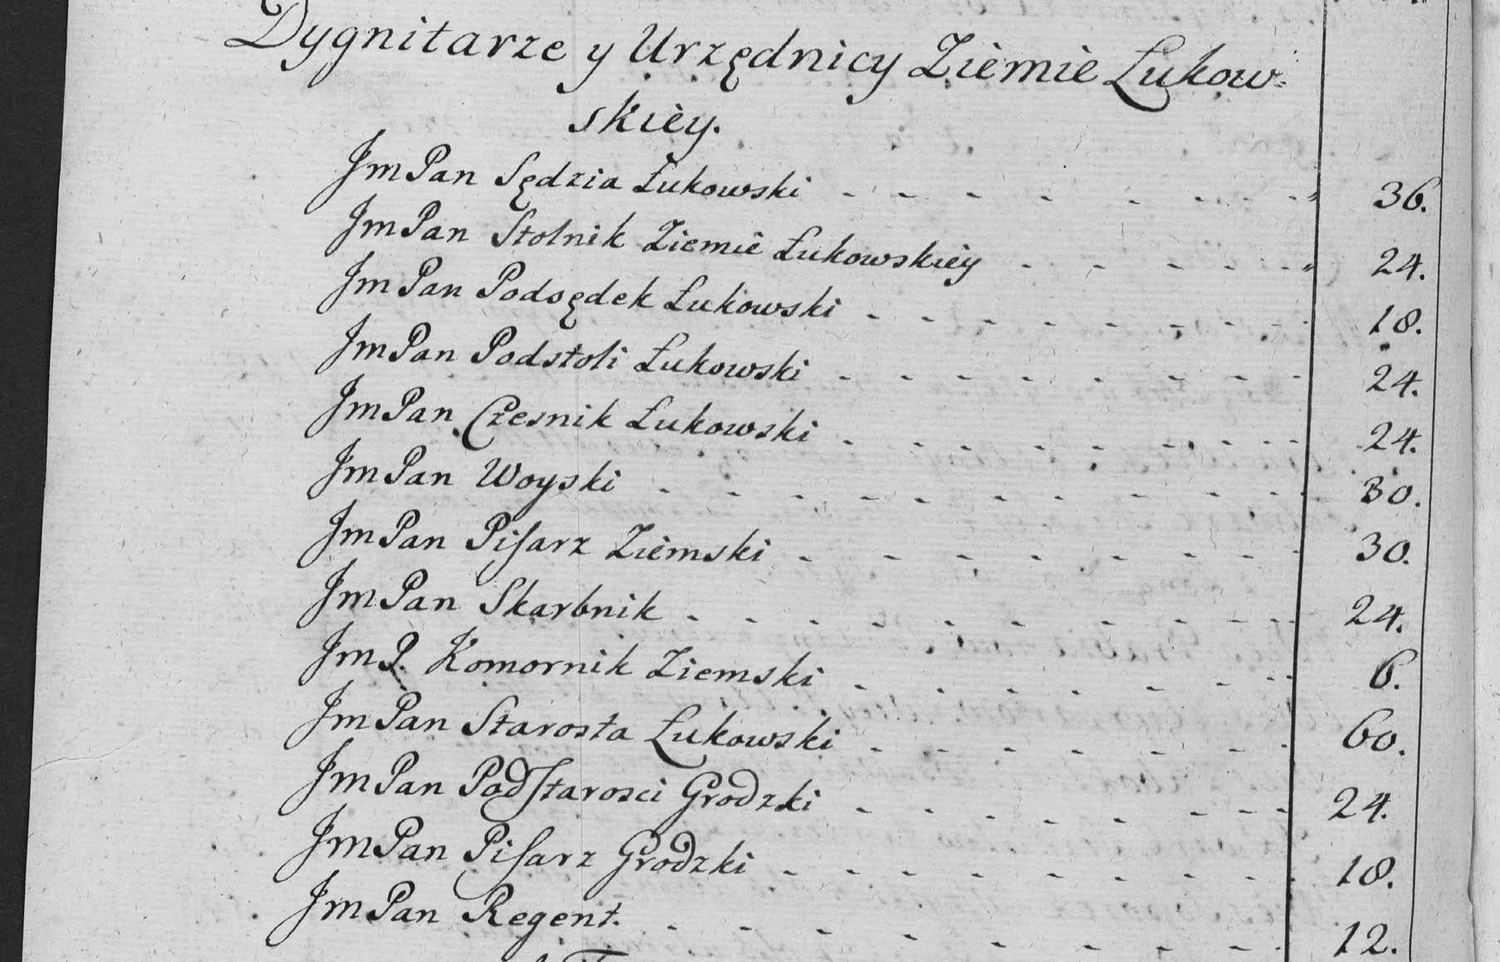 Dygnitarze y Urzędnicy Ziemie Łukow=
skiey.
JmPan Sędzia Łukowski - - - - - - - - 36.
JmPan Stolnik Ziemie Łukowskiey - - - - - - 24.
JmPan Podsędek Łukowski - - - - - - - - 18.
JmPan Podstoli Łukowski - - - - - - - - 24.
JmPan Czesnik Łukowski - - - - - - - - 24.
JmPan Woyski - - - - - - - - - - 30.
JmPan Pisarz Ziemski - - - - - - - 30.
JmPan Skarbnik - - - - - - - - - - 24.
JmP. Komornik Ziemski - - - - - - - 6.
JmPan Starosta Łukowski - - - - - - - 60.
JmPan PodStarosci Grodzki - - - - - - - 24.
JmPan Pisarz Grodzki - - - - - - - - - 18.
JmPan Regent. - - - - - - - - 12.